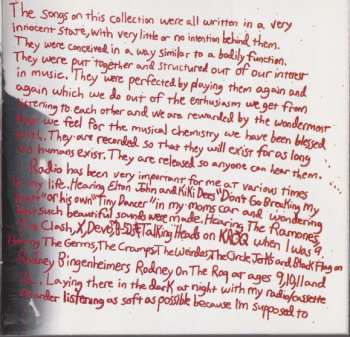 The songs on this collection were all written in a very
innocent state, with very little or no intention behind them.
They were conceived in a way similar to a bodily function.
They were put together and structured out of our interest
in music. They were perfected by playing them again and
again which we do out of the enthusiasm we get from
listening to each other and we are rewarded by the wonderment
we feel for the musical chemistry we have been blessed
with. They are recorded so that they will exist for as long
as humans exist. They are released so anyone can hear them.
Radio has been very important for me at various times
in my life. Hearing Elton John and Kiki Dees "Don't Go Breaking My
Heart" or his own "Tiny Dancer" in my moms car and wondering
how such beautiful sounds were made. Hearing The Ramones,
The Clash, X, Devo, B-52s, Talking Heads on KROQ when I was 9.
Hearing The Germs, The Cramps, The Weirdos, The Circle Jerks and Black Flag on
Rodney Bingenheimers Rodney On The Roq at ages 9, 10, 11 and
Laying there in the dark at night with my radio/cassette
recorder listening as soft as possible because I'm supposed to